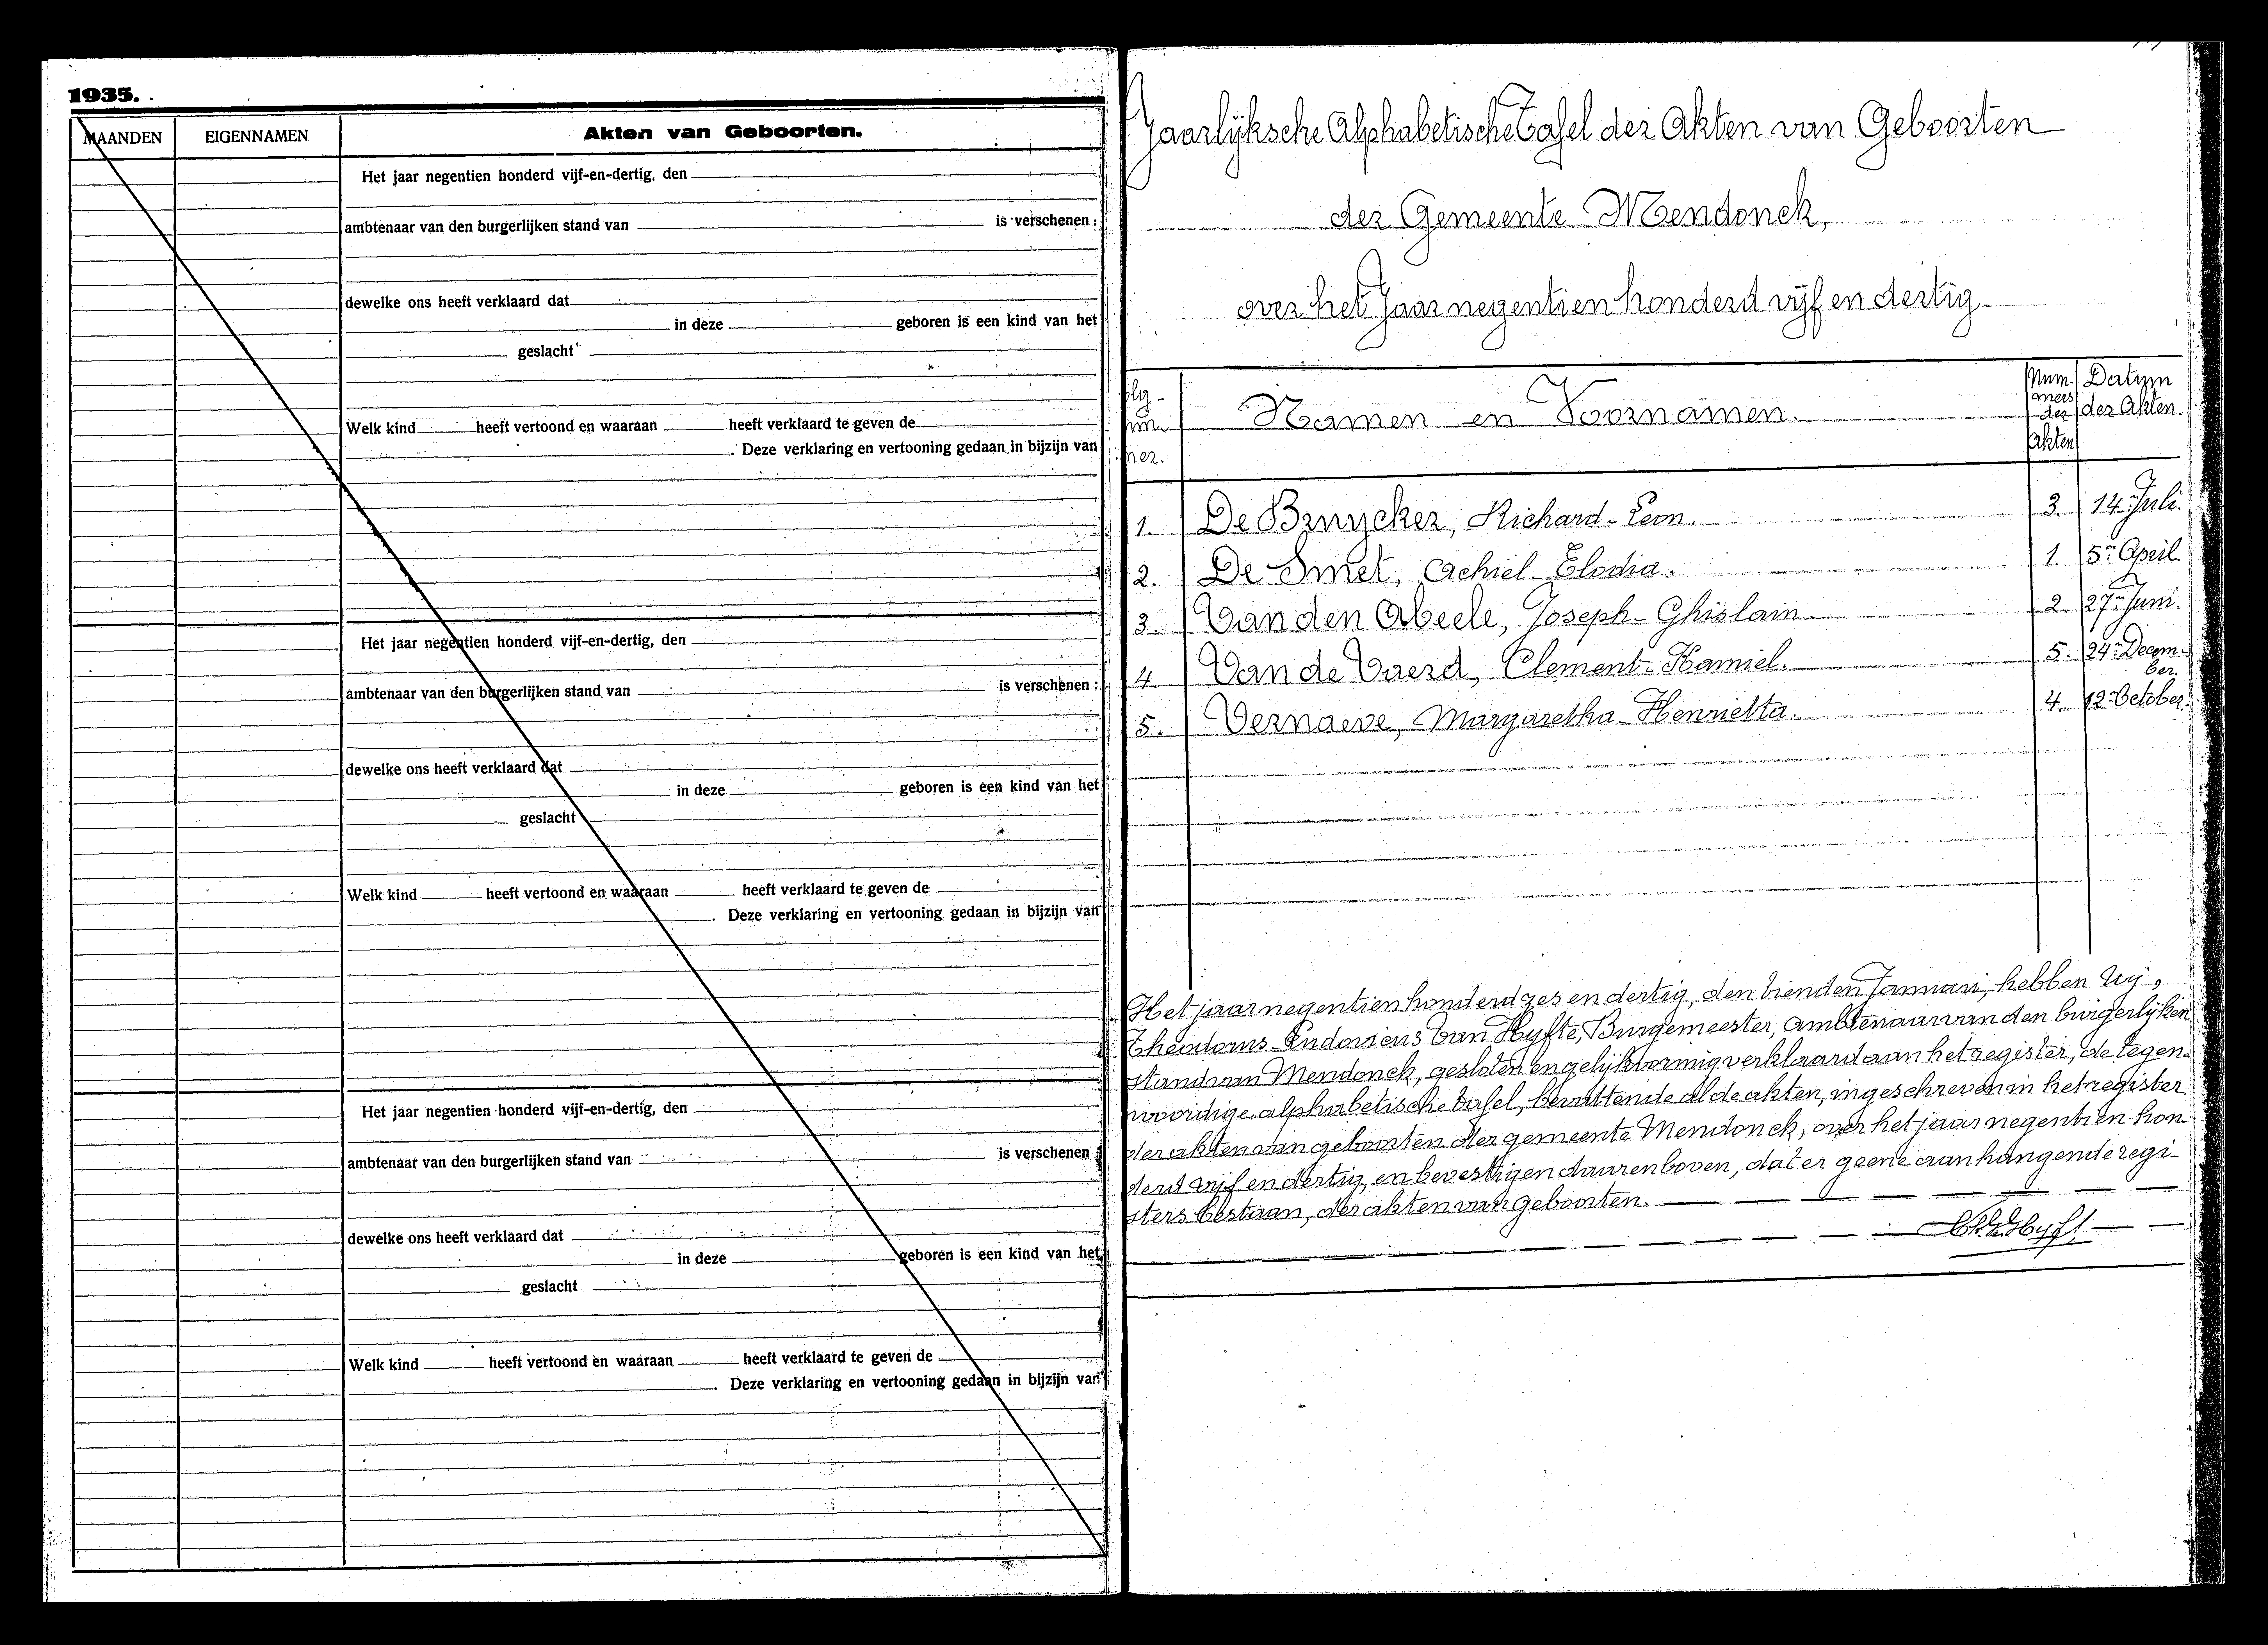 1935.
MAANDEN EIGENNAMEN Akten van Geboorten.
Het jaar negentien honderd vijf-en-dertig, den
ambtenaar van den burgerlijken stand van is verschenen :
dewelke ons heeft verklaard dat
in deze geboren is een kind van het
geslacht
Welk kind heeft vertoond en waaraan heeft verklaard te geven de
. Deze verklaring en vertooning gedaan in bijzijn van
Het jaar negentien honderd vijf-en-dertig, den
ambtenaar van den burgerlijken stand van is verschenen :
dewelke ons heeft verklaard dat
in deze geboren is een kind van het
geslacht
Welk kind heeft vertoond en waaraan heeft verklaard te geven de
. Deze verklaring en vertooning gedaan in bijzijn van
Het jaar negentien honderd vijf-en-dertig, den
ambtenaar van den burgerlijken stand van is verschenen :
dewelke ons heeft verklaard dat
in deze geboren is een kind van het
geslacht
Welk kind heeft vertoond en waaraan heeft verklaard te geven de
. Deze verklaring en vertooning gedaan in bijzijn van
Jaarlijksche Alphabetische Tafel der Akten van Geboorten
der Gemeente Mendonck,
over het Jaar negentien honderd vijf en dertig
Namen en Voornamen. Nummers der Akten Datum der Akten.
1. De Bruycker, Richard-Leon. 3. 14 Juli.
2. De Smet, Achiel-Elodia. 1. 5n April
3. Van den Abeele, Joseph-Ghislain 2. 27n Juni.
4. Van de Vuerd, Clement-Kamiel. 5. 24n December.
5. Vernaeve, Margaretha-Henrietta. 4. 12n October.
Het jaar negentien honderd zes en dertig, den tienden Januari, hebben Wij,
Theodorus-Ludovicus Van Hyfte, Burgemeester, Ambtenaar van den burgerlijken
stand van Mendonck, gesloten en gelijkvormig verklaard aan het register, de tegen-
woordige alphabetische tafel, bevattende al de akten, ingeschreven in het register
der akten van geboorten der gemeente Mendonck, over het jaar negentien hon-
derd vijf en dertig, en bevestigen daarenboven, dat er geene aanhangende regi-
sters bestaan, der akten van geboorten.